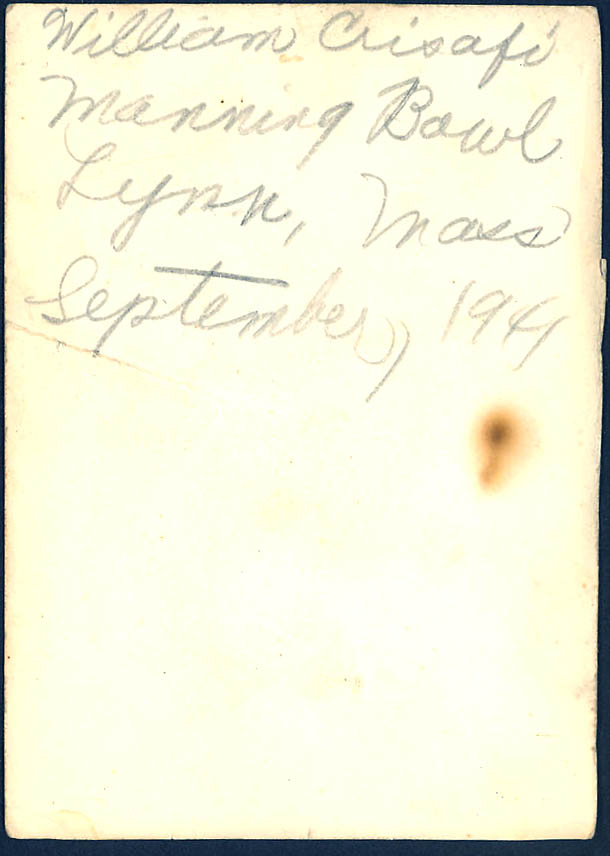 William Crisafi
Manning Bowl
Lynn, Mass
September, 1941